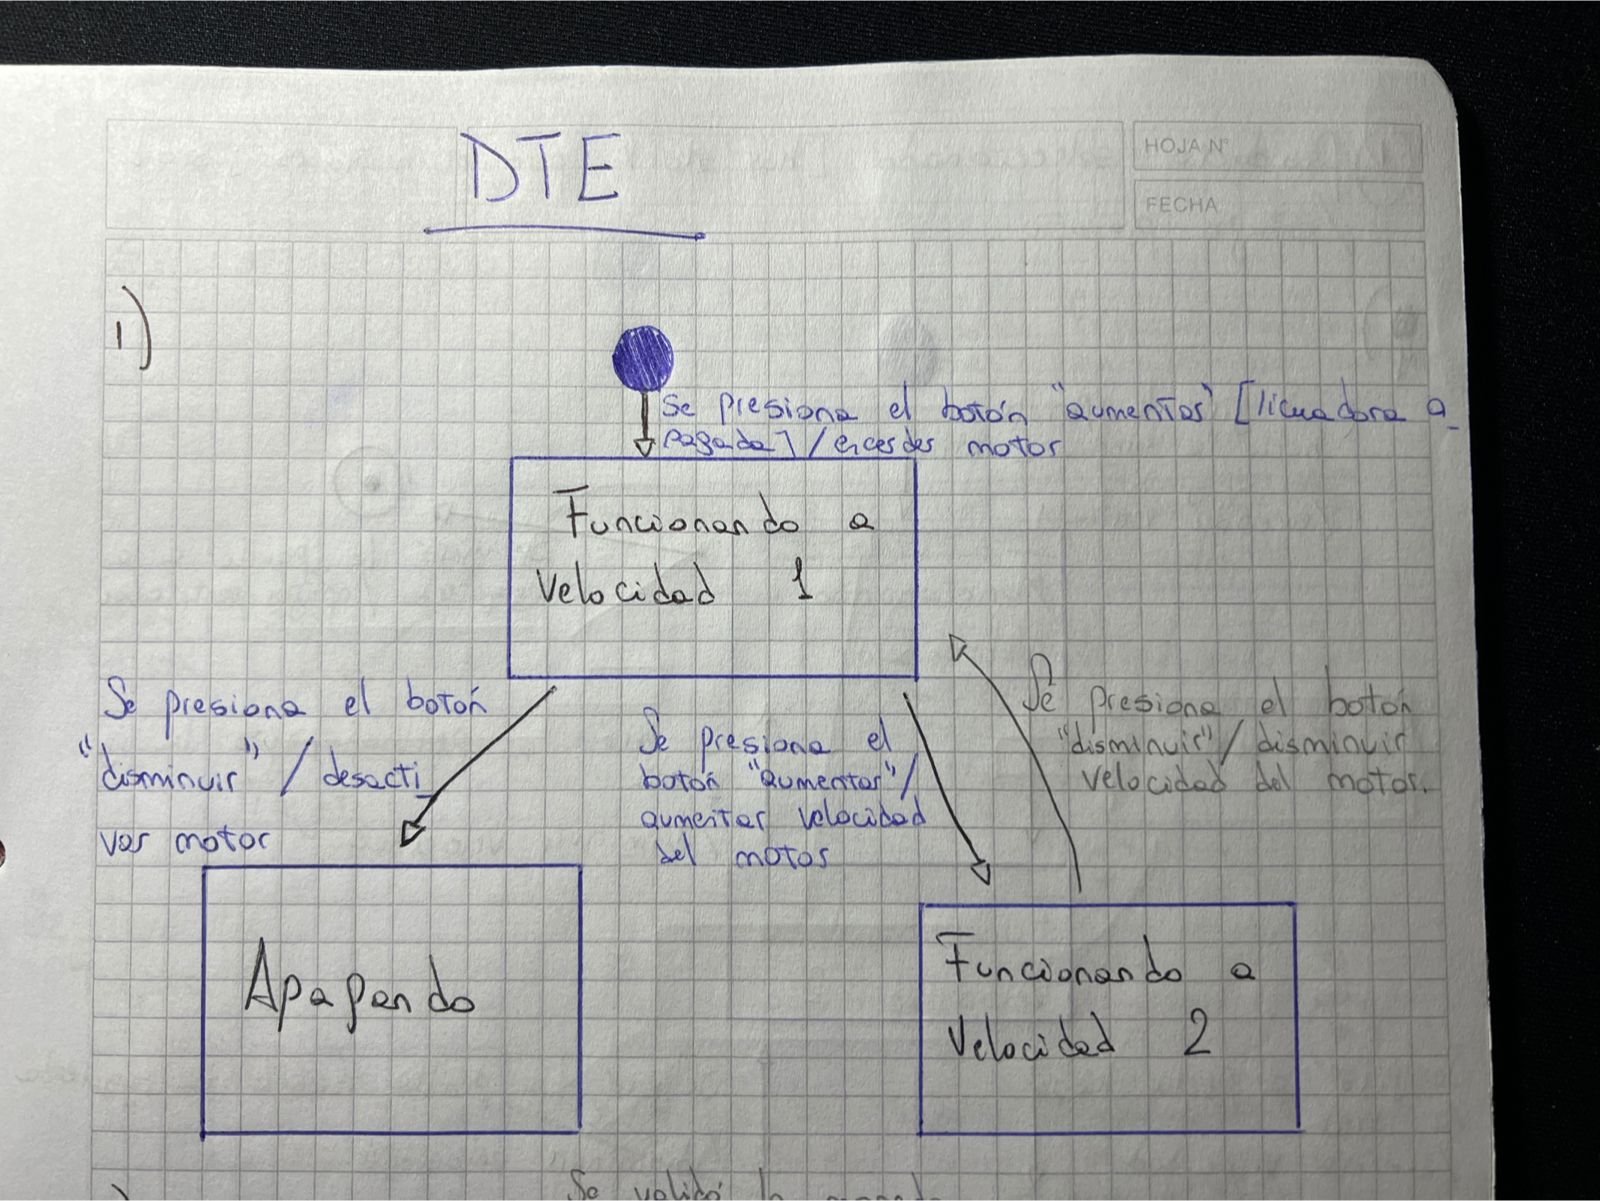 DTE
HOJA N°
FECHA
1)
Se presiona el botón "aumentar" [licuadora a_
pagada] / encender motor
Funcionando a
Velocidad 1
Se presiona el botón
"disminuir" / desacti_
var motor
Se presiona el
botón "aumentar" /
aumentar velocidad
del motor
Se presiona el botón
"disminuir" / disminuir
velocidad del motor.
Apagando
Funcionando a
Velocidad 2
Se validó la